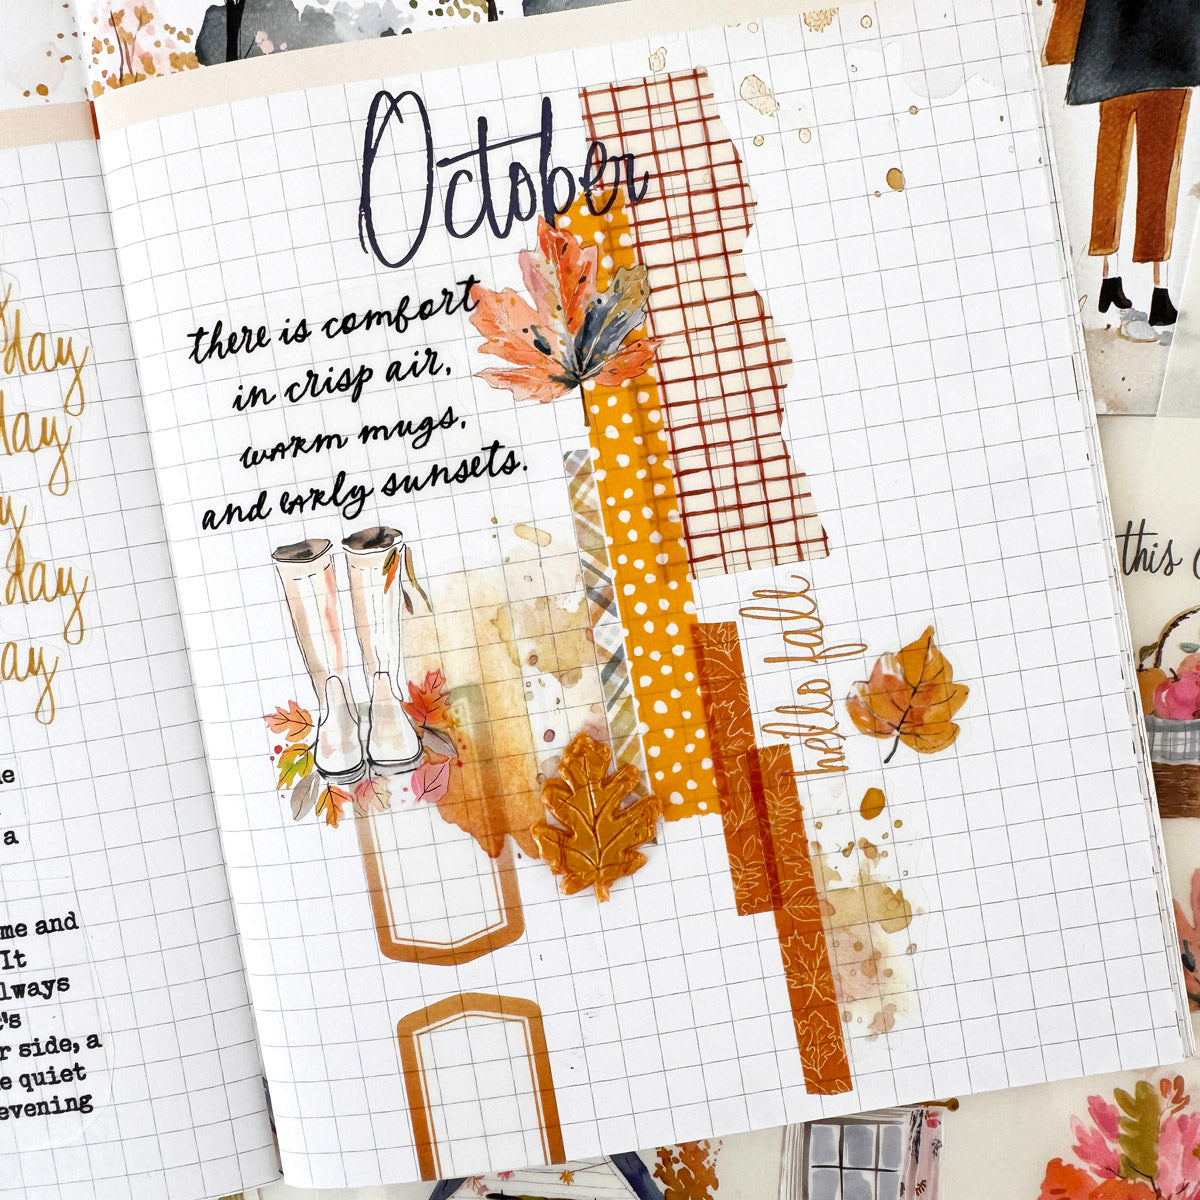 October
there is comfort
in crisp air,
warm mugs,
and early sunsets.
hello fall
day
day
day
ay
a
me and
It
lways
t's
r side, a
e quiet
evening
this